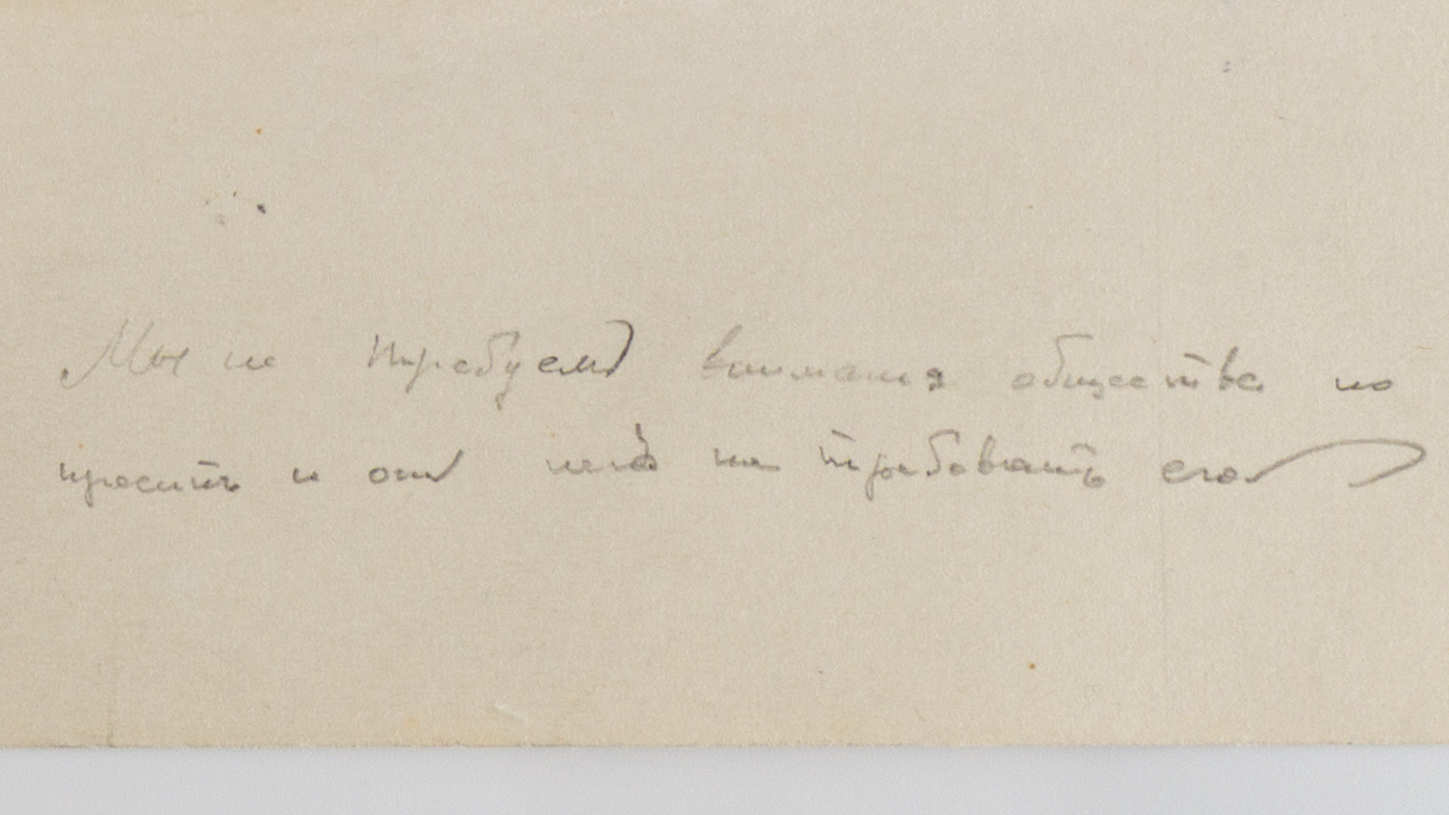 Мы не требуем внимания общества но
просить и от нас не требовать его